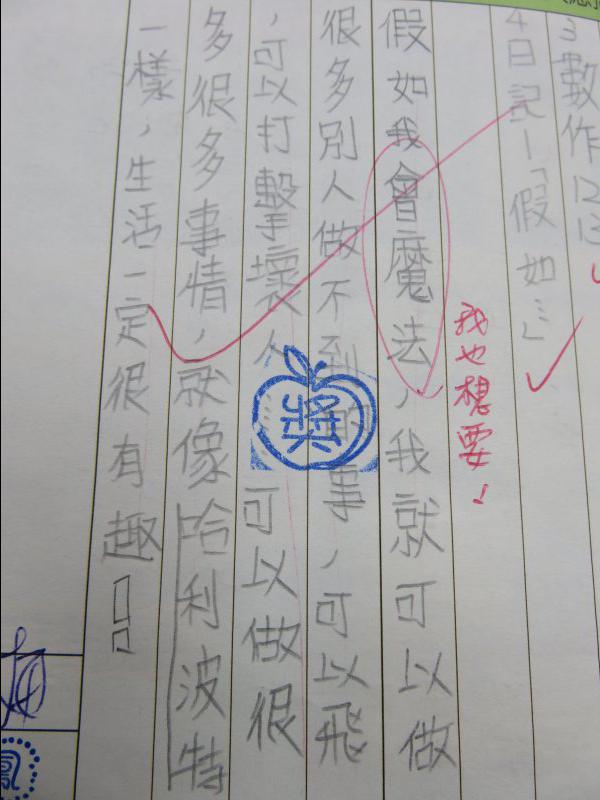 3數作12、13
4日記—「假如…」
我也想要！
假如我會魔法，我就可以做
很多別人做不到的事，可以飛
，可以打擊壞人
獎
可以做很
多很多事情，就像哈利波特
一樣，生活一定很有趣！！